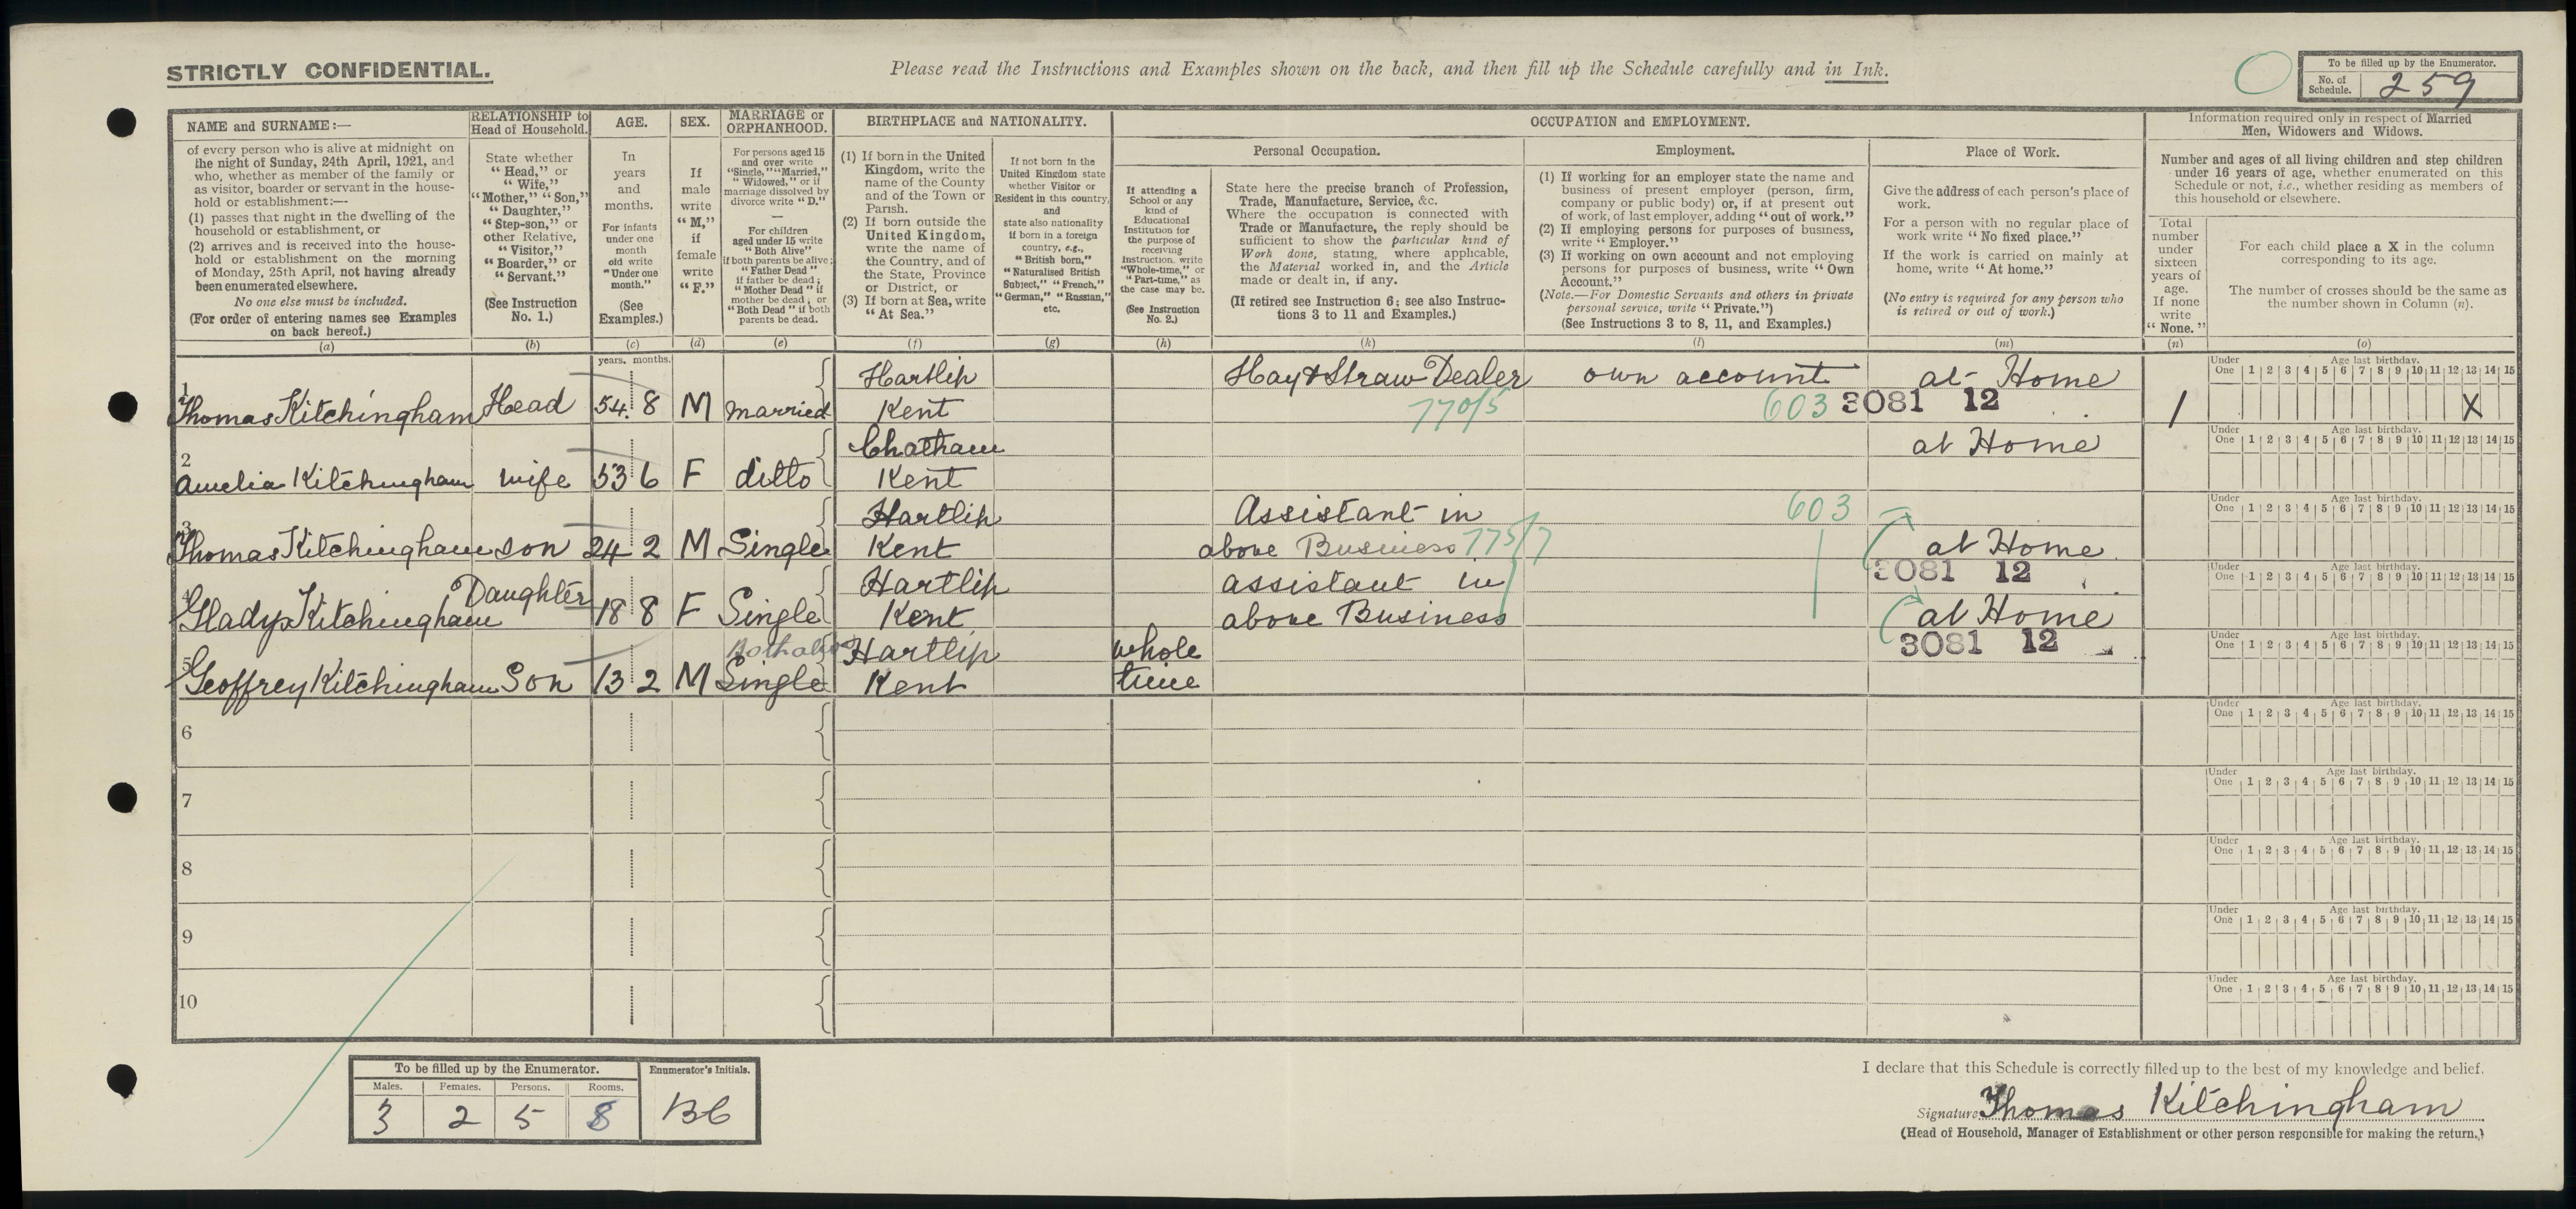 STRICTLY CONFIDENTIAL.
Please read the Instructions and Examples shown on the back, and then fill up the Schedule carefully and in Ink.
To be filled up by the Enumerator.
No. of Schedule. 259
NAME and SURNAME:—
of every person who is alive at midnight on
the night of Sunday, 24th April, 1921, and
who, whether as member of the family or
as visitor, boarder or servant in the house-
hold or establishment:—
(1) passes that night in the dwelling of the
household or establishment, or
(2) arrives and is received into the house-
hold or establishment on the morning
of Monday, 25th April, not having already
been enumerated elsewhere.
No one else must be included.
(For order of entering names see Examples
on back hereof.)
(a)
RELATIONSHIP to
Head of Household.
State whether
"Head," or
"Wife,"
"Mother," "Son,"
"Daughter,"
"Step-son," or
other Relative,
"Visitor,"
"Boarder," or
"Servant."
(See Instruction
No. 1.)
(b)
AGE.
In
years
and
months.
For infants
under one
month
old write
"Under one
month."
(See
Examples.)
(c)
SEX.
If
male
write
"M,"
if
female
write
"F."
(d)
MARRIAGE or
ORPHANHOOD.
For persons aged 15
and over write
"Single," "Married,"
"Widowed," or if
marriage dissolved by
divorce write "D."
—
For children
aged under 15 write
"Both Alive"
if both parents be alive;
"Father Dead"
if father be dead;
"Mother Dead" if
mother be dead; or
"Both Dead" if both
parents be dead.
(e)
BIRTHPLACE and NATIONALITY.
(1) If born in the United
Kingdom, write the
name of the County
and of the Town or
Parish.
(2) If born outside the
United Kingdom,
write the name of
the Country, and of
the State, Province
or District, or
(3) If born at Sea, write
"At Sea."
(f)
If not born in the
United Kingdom state
whether Visitor or
Resident in this country,
and
state also nationality
if born in a foreign
country, e.g.,
"British born,"
"Naturalised British
Subject," "French,"
"German," "Russian,"
etc.
(g)
OCCUPATION and EMPLOYMENT.
If attending a
School or any
kind of
Educational
Institution for
the purpose of
receiving
instruction, write
"Whole-time," or
"Part-time," as
the case may be.
(See Instruction
No. 2.)
(h)
Personal Occupation.
State here the precise branch of Profession,
Trade, Manufacture, Service, &c.
Where the occupation is connected with
Trade or Manufacture, the reply should be
sufficient to show the particular kind of
Work done, stating, where applicable,
the Material worked in, and the Article
made or dealt in, if any.
(If retired see Instruction 6; see also Instruc-
tions 3 to 11 and Examples.)
(k)
Employment.
(1) If working for an employer state the name and
business of present employer (person, firm,
company or public body) or, if at present out
of work, of last employer, adding "out of work."
(2) If employing persons for purposes of business,
write "Employer."
(3) If working on own account and not employing
persons for purposes of business, write "Own
Account."
(Note.—For Domestic Servants and others in private
personal service, write "Private.")
(See Instructions 3 to 8, 11, and Examples.)
(l)
Place of Work.
Give the address of each person's place of
work.
For a person with no regular place of
work write "No fixed place."
If the work is carried on mainly at
home, write "At home."
(No entry is required for any person who
is retired or out of work.)
(m)
Information required only in respect of Married
Men, Widowers and Widows.
Number and ages of all living children and step children
under 16 years of age, whether enumerated on this
Schedule or not, i.e., whether residing as members of
this household or elsewhere.
Total
number
under
sixteen
years of
age.
If none
write
"None."
(n)
For each child place a X in the column
corresponding to its age.
The number of crosses should be the same as
the number shown in Column (n).
(o)
years. months.
Under One Age last birthday. 1 2 3 4 5 6 7 8 9 10 11 12 13 14 15
1 Thomas Kitchingham Head 54 8 M married Hartlip Kent Hay & Straw Dealer 770/5 own account 603 at Home 3081 12 1 X
Under One Age last birthday. 1 2 3 4 5 6 7 8 9 10 11 12 13 14 15
2 Amelia Kitchingham wife 53 6 F ditto Chatham Kent at Home
Under One Age last birthday. 1 2 3 4 5 6 7 8 9 10 11 12 13 14 15
3 Thomas Kitchingham son 24 2 M Single Hartlip Kent Assistant in above Business 775/7 603 at Home 3081 12
Under One Age last birthday. 1 2 3 4 5 6 7 8 9 10 11 12 13 14 15
4 Gladys Kitchingham Daughter 18 8 F Single Hartlip Kent assistant in above Business at Home 3081 12
Under One Age last birthday. 1 2 3 4 5 6 7 8 9 10 11 12 13 14 15
5 Geoffrey Kitchingham Son 13 2 M Both alive Single Hartlip Kent whole time
Under One Age last birthday. 1 2 3 4 5 6 7 8 9 10 11 12 13 14 15
6
Under One Age last birthday. 1 2 3 4 5 6 7 8 9 10 11 12 13 14 15
7
Under One Age last birthday. 1 2 3 4 5 6 7 8 9 10 11 12 13 14 15
8
Under One Age last birthday. 1 2 3 4 5 6 7 8 9 10 11 12 13 14 15
9
Under One Age last birthday. 1 2 3 4 5 6 7 8 9 10 11 12 13 14 15
10
To be filled up by the Enumerator.
Males. Females. Persons. Rooms.
3 2 5 8
Enumerator's Initials.
I declare that this Schedule is correctly filled up to the best of my knowledge and belief.
Signature Thomas Kitchingham
(Head of Household, Manager of Establishment or other person responsible for making the return.)